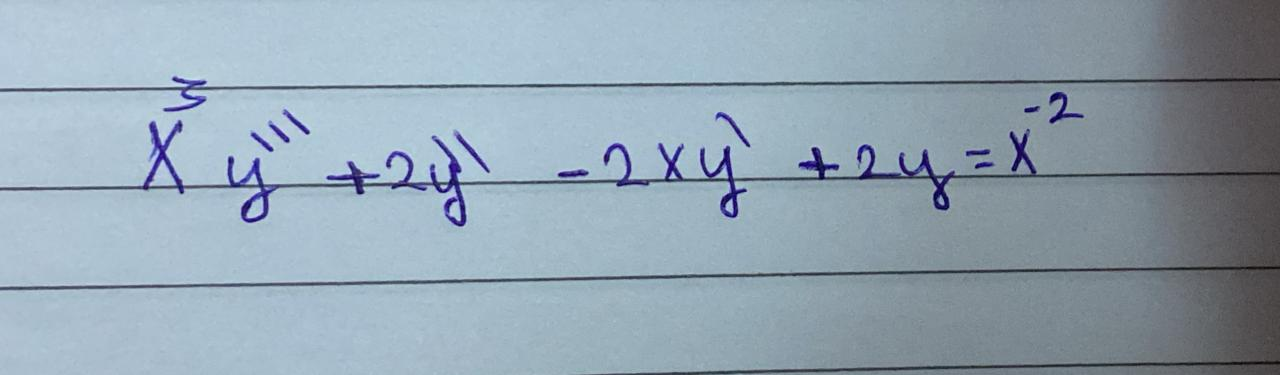 x³ y''' + 2y'' - 2xy' + 2y = x⁻²